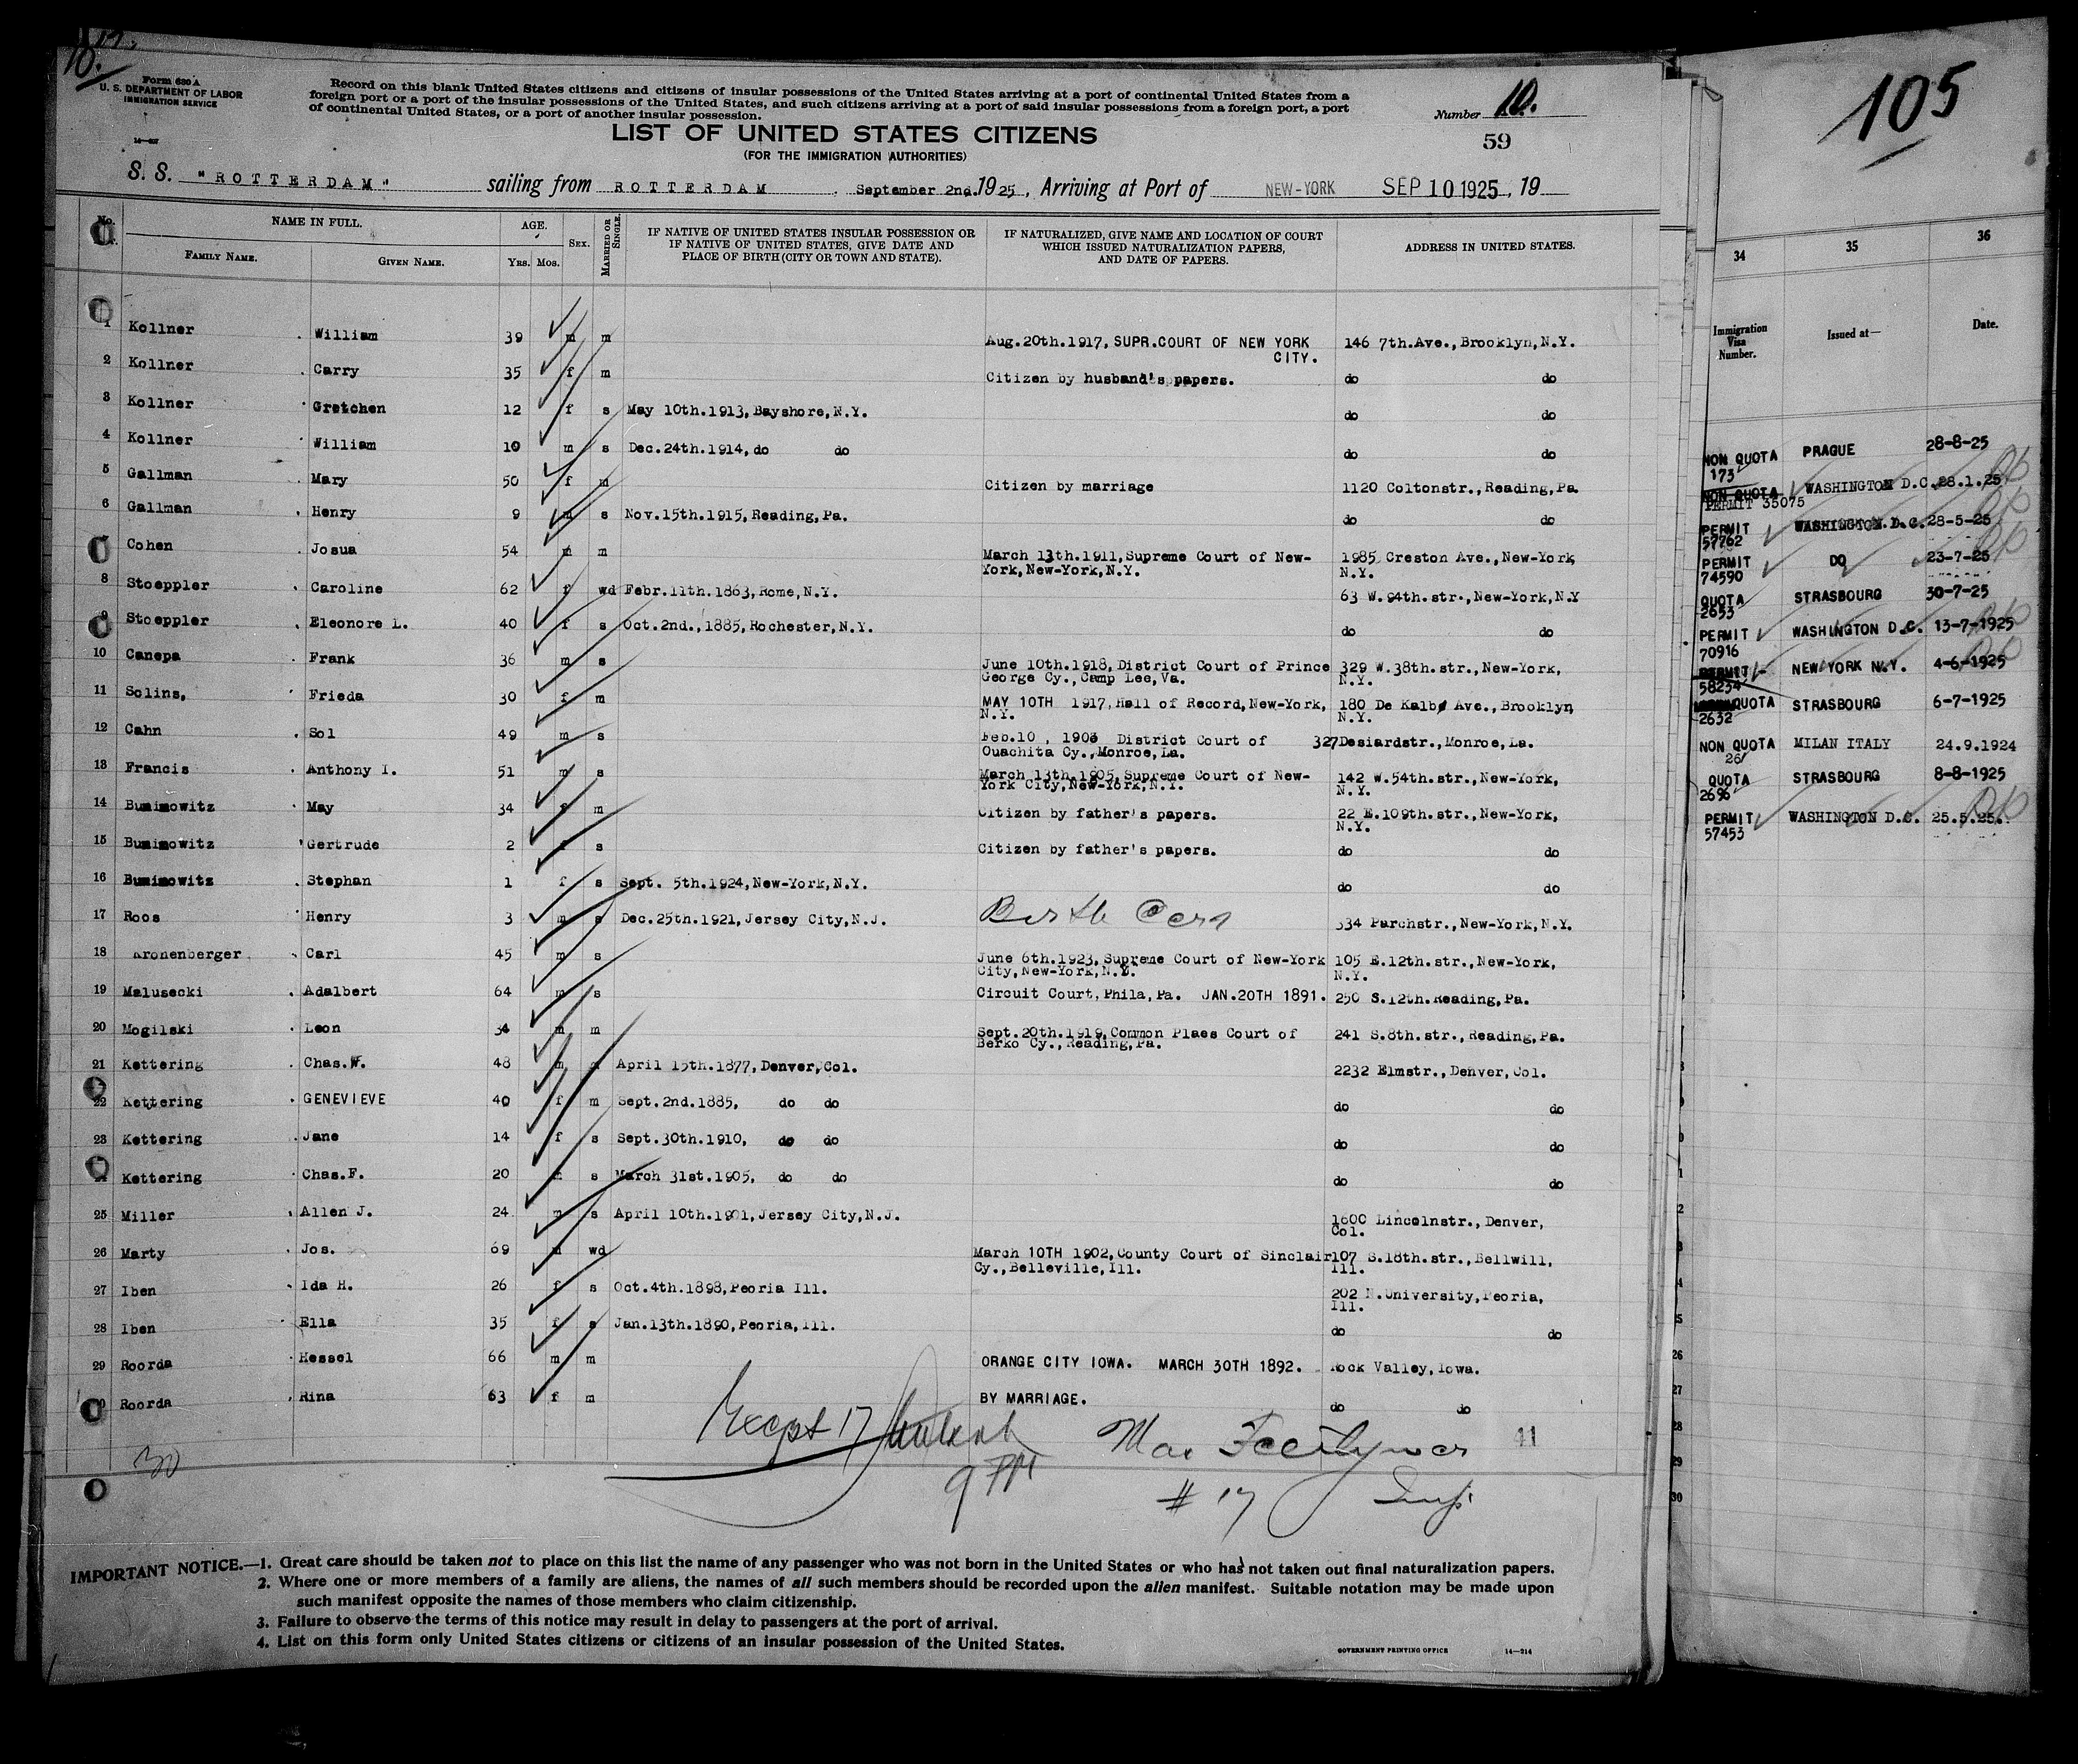 10.
Form 630 A
U. S. DEPARTMENT OF LABOR
IMMIGRATION SERVICE
Record on this blank United States citizens and citizens of insular possessions of the United States arriving at a port of continental United States from a
foreign port or a port of the insular possessions of the United States, and such citizens arriving at a port of said insular possessions from a foreign port, a port
of continental United States, or a port of another insular possession.
Number 10.
LIST OF UNITED STATES CITIZENS
59
(FOR THE IMMIGRATION AUTHORITIES)
S. S. "ROTTERDAM" sailing from ROTTERDAM, September 2nd. 1925, Arriving at Port of NEW-YORK SEP 10 1925, 19
No. NAME IN FULL. AGE. SEX. MARRIED OR SINGLE. IF NATIVE OF UNITED STATES INSULAR POSSESSION OR IF NATIVE OF UNITED STATES, GIVE DATE AND PLACE OF BIRTH (CITY OR TOWN AND STATE). IF NATURALIZED, GIVE NAME AND LOCATION OF COURT WHICH ISSUED NATURALIZATION PAPERS, AND DATE OF PAPERS. ADDRESS IN UNITED STATES.
FAMILY NAME. GIVEN NAME. YRS. MOS.
1 Kollner William 39 m m Aug.20th.1917, SUPR.COURT OF NEW YORK CITY. 146 7th.Ave., Brooklyn, N.Y.
2 Kollner Carry 35 f m Citizen by husband's papers. do do
3 Kollner Gretchen 12 f s May 10th.1913, Bayshore, N.Y. do do
4 Kollner William 10 m s Dec.24th.1914, do do do do
5 Gallman Mary 50 f m Citizen by marriage 1120 Coltonstr., Reading, Pa.
6 Gallman Henry 9 m s Nov.15th.1915, Reading, Pa. do do
Cohen Josua 54 m m March 13th.1911, Supreme Court of New-York, New-York, N.Y. 1985 Creston Ave., New-York, N.Y.
8 Stoeppler Caroline 62 f wd Febr.11th.1863, Rome, N.Y. 63 W.94th.str., New-York, N.Y
9 Stoeppler Eleonore L. 40 f s Oct.2nd., 1885, Rochester, N.Y. do do
10 Canepa Frank 36 m s June 10th.1918, District Court of Prince George Cy., Camp Lee, Va. 329 W.38th.str., New-York, N.Y.
11 Solins, Frieda 30 f m MAY 10TH 1917, Hall of Record, New-York, N.Y. 180 De Kalb Ave., Brooklyn, N.Y.
12 Cahn Sol 49 m s Feb.10, 1903 District Court of Ouachita Cy., Monroe, La. 327 Desiardstr., Monroe, La.
13 Francis Anthony I. 51 m s March 13th.1905, Supreme Court of New-York City, New-York, N.Y. 142 W.54th.str., New-York, N.Y.
14 Bunimowitz May 34 f m Citizen by father's papers. 22 E.109th.str., New-York, N.Y.
15 Bunimowitz Gertrude 2 f s Citizen by father's papers. do do
16 Bunimowitz Stephan 1 f s Sept. 5th.1924, New-York, N.Y. do do
17 Roos Henry 3 m s Dec.25th.1921, Jersey City, N.J. Birth Cert 334 Parchstr., New-York, N.Y.
18 Kronenberger Carl 45 m s June 6th.1923, Supreme Court of New-York City, New-York, N.Y. 105 E.12th.str., New-York, N.Y.
19 Malusecki Adalbert 64 m s Circuit Court, Phila, Pa. JAN.20TH 1891. 250 S.12th.Reading, Pa.
20 Mogilski Leon 34 m m Sept.20th.1919, Common Plaes Court of Berko Cy., Reading, Pa. 241 S.8th.str., Reading, Pa.
21 Kettering Chas.W. 48 m April 15th.1877, Denver, Col. 2232 Elmstr., Denver, Col.
22 Kettering GENEVIEVE 40 f m Sept.2nd.1885, do do do do
23 Kettering Jane 14 f s Sept.30th.1910, do do do do
Kettering Chas.F. 20 s March 31st.1905, do do do do
25 Miller Allen J. 24 m s April 10th.1901, Jersey City, N.J. 1600 Lincolnstr., Denver, Col.
26 Marty Jos. 69 m wd March 10TH 1902, County Court of Sinclair Cy., Belleville, Ill. 107 S.18th.str., Bellwill, Ill.
27 Iben Ida H. 26 f s Oct.4th.1898, Peoria Ill. 202 N.University, Peoria, Ill.
28 Iben Ella 35 f s Jan.13th.1890, Peoria, Ill. do do
29 Roorda Hessel 66 m m ORANGE CITY IOWA. MARCH 30TH 1892. Rock Valley, Iowa.
Roorda Rina 63 f m BY MARRIAGE. do do
30
Except 17
9 PM
Max
41
# 17
Insp
IMPORTANT NOTICE.—1. Great care should be taken not to place on this list the name of any passenger who was not born in the United States or who has not taken out final naturalization papers.
2. Where one or more members of a family are aliens, the names of all such members should be recorded upon the alien manifest. Suitable notation may be made upon
such manifest opposite the names of those members who claim citizenship.
3. Failure to observe the terms of this notice may result in delay to passengers at the port of arrival.
4. List on this form only United States citizens or citizens of an insular possession of the United States.
GOVERNMENT PRINTING OFFICE 14—214
105
34 35 36
Immigration Visa Number. Issued at— Date.
NON QUOTA 173 PRAGUE 28-8-25
NON QUOTA PERMIT 35075 WASHINGTON D.C. 28.1.25
PERMIT 57762 WASHINGTON.D.C. 28-5-25
PERMIT 74590 DO 23-7-25
QUOTA 2653 STRASBOURG 30-7-25
PERMIT 70916 WASHINGTON D.C. 13-7-1925
PERMIT 58234 NEW YORK N.Y. 4-6-1925
QUOTA 2632 STRASBOURG 6-7-1925
NON QUOTA 26 MILAN ITALY 24.9.1924
QUOTA 2696 STRASBOURG 8-8-1925
PERMIT 57453 WASHINGTON D.C. 25.5.25.
26
27
28
29
30